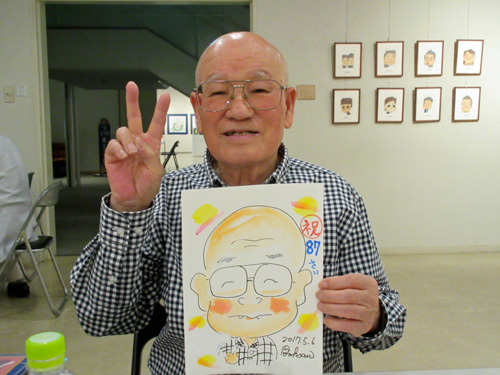 祝
87
さい
2017.5.6